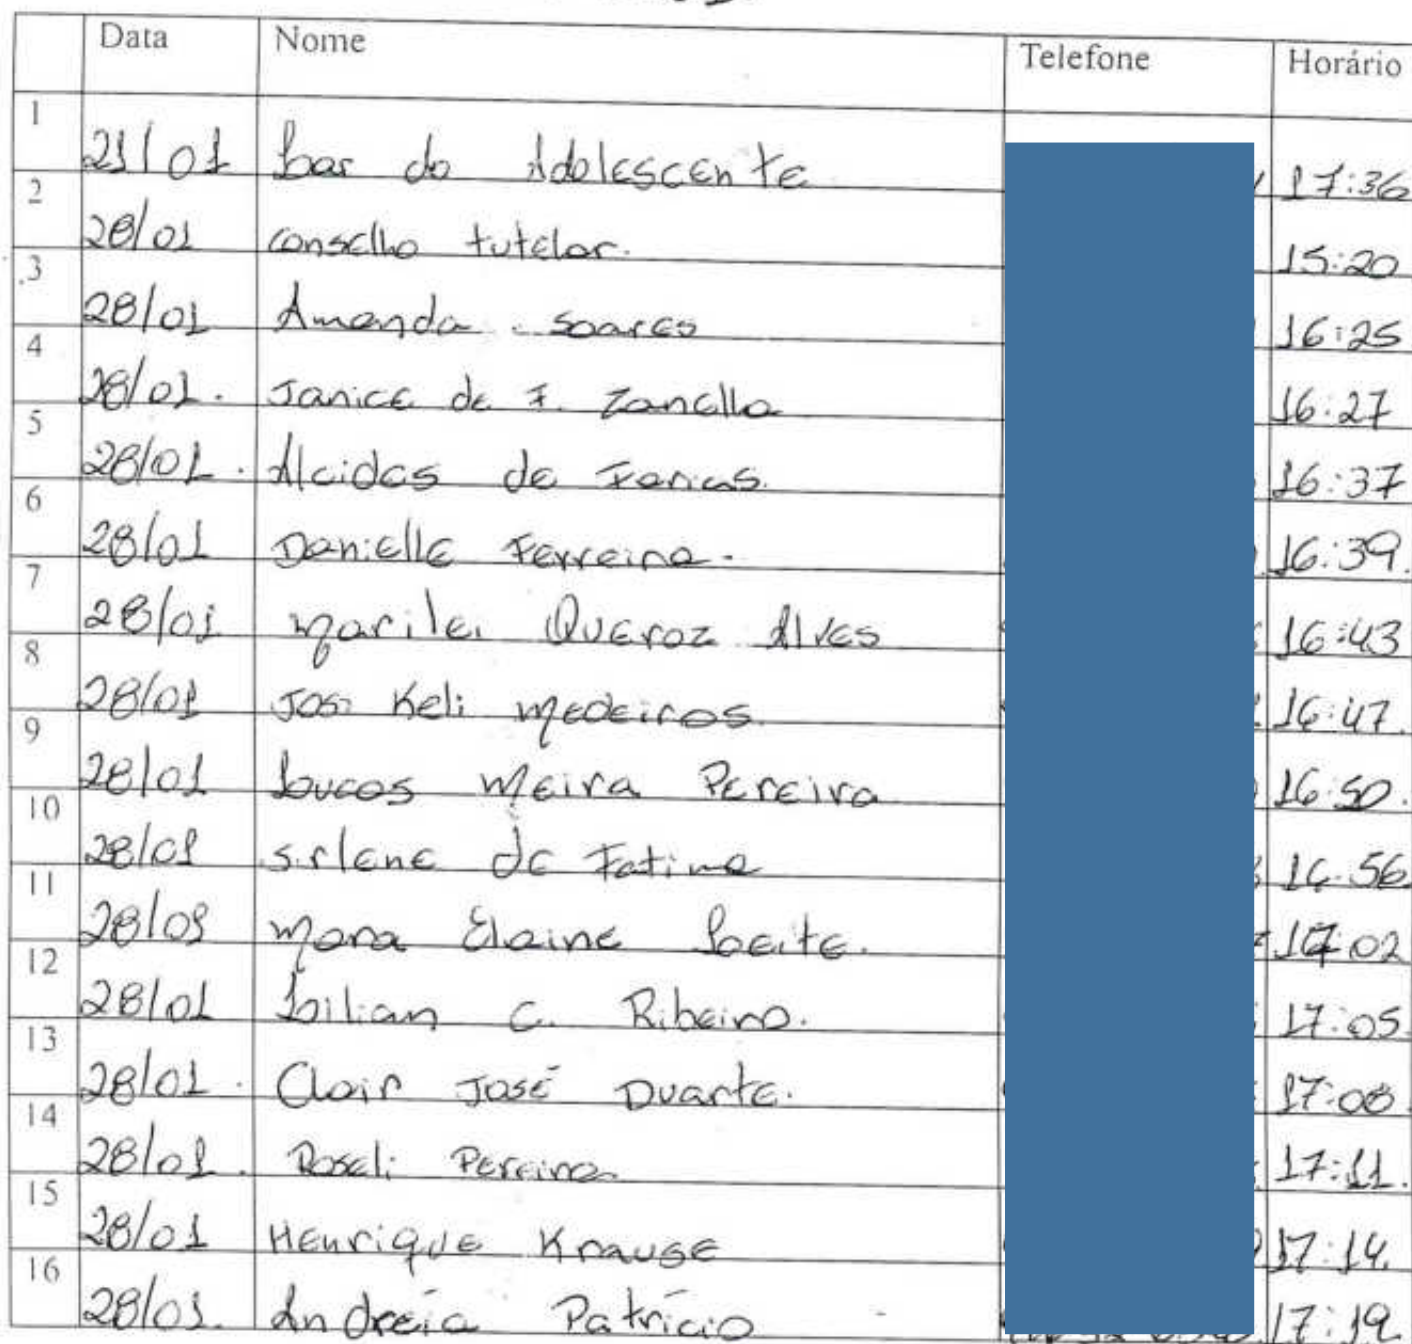 Data Nome Telefone Horário
1 21/01 Lar do Adolescente 17:36
2 28/01 conselho tutelar. 15:20
3 28/01 Amanda soares 16:25
4 28/01. Janice de F. Zanella 16:27
5 28/01. Alcides de Farias. 16:37
6 28/01 Danielle Ferreira. 16:39.
7 28/01 Marilei Queroz Alves 16:43
8 28/01 Josi Keli Medeiros. 16:47.
9 28/01 Lucas Meira Pereira 16:50.
10 28/01 Sirlene de Fatima 16:56
11 28/01 Mara Elaine Leite. 17:02
12 28/01 Lilian C. Ribeiro. 17:05.
13 28/01. Clair José Duarte. 17:08
14 28/01. Roseli Pereira. 17:11.
15 28/01 Henrique Krause 17:14.
16 28/01. Andreia Patrício 17:19.